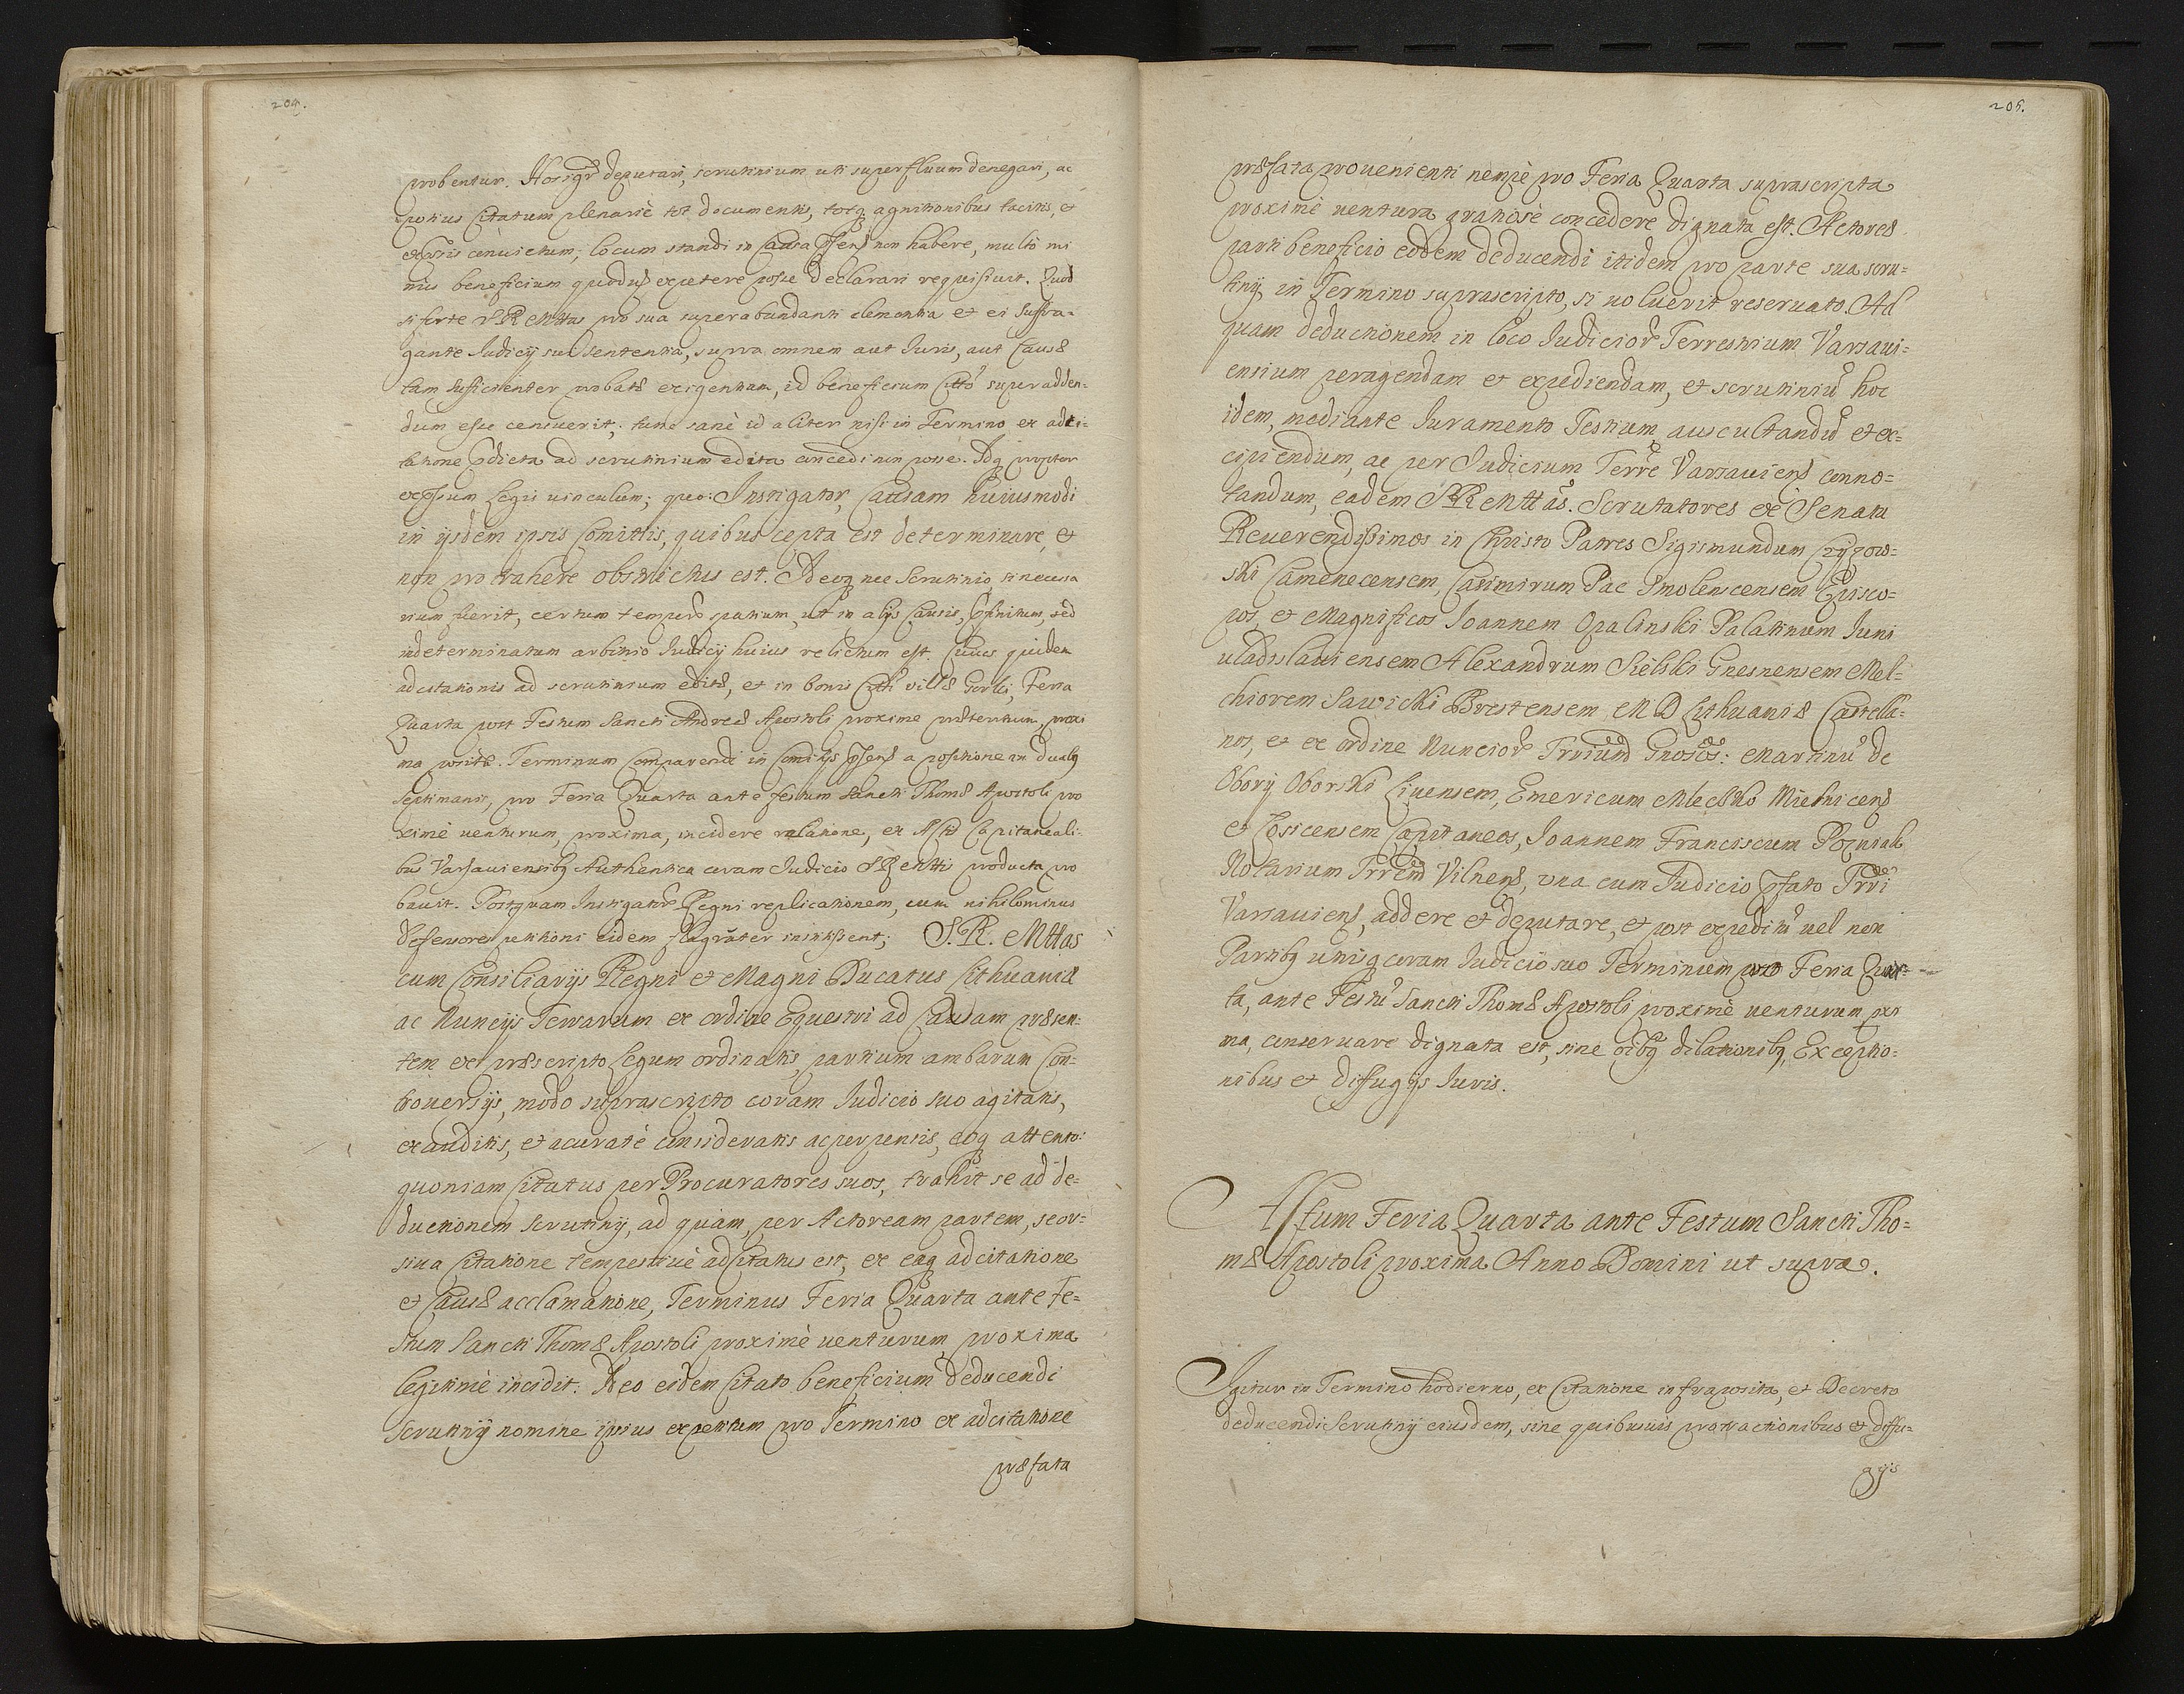 204.
probentur. deputari, scrutinium uti superfluum denegari, ac
potius Citatum plenariè tot documentis, totq agnitionibus tacitis, et
expssis cōnuictum; locum standi in Causa pſenti non habere, multò mi
nus beneficium quoduis expetere poſse declarari requisiuit. Quod
si forte S R Mttas pro sua superabundanti clementia et ei suffra-
gante Iudicij sui sententia, supra omnem aut Iuris, aut Causæ
tam sufficienter probatæ exigentiam, id beneficium Citto superadden-
dum eſse censuerit; tunc sanè id aliter nisi in Termino ex adci-
tatione pdicta ad scrutinium edita concedi non poſse. Idq propter
expſsum Legis uinculum; quo: Instigator, Causam huiusmodi
in ijsdem ipsis Comitijs, quibus cepta est determinare, et
non protrahere obstrictus est. Adeoq nec scrutinio, si necessa
rium fuerit, certum temporis spatium, ut in alijs Causis, pfinitum, sed
indeterminatum arbitrio Iudicij huius relictum est. Cuius quidem
adcitationis ad scrutinium editæ, et in bonis Citti villæ Gorki, Feria
Quarta post Festum Sancti Andreæ Apostoli proxime præteritum, proxi
ma positæ. Terminum Comparendi in Comitijs pſenti a positione in duabq
septimanis, pro Feria Quarta ante festum Sancti Thomæ Apostoli pro
ximè uenturum, proxima, incidere relatione, ex Actis Capitaneali-
bus Varsauiensibq Authentica coram Iudicio S R Mttis producta pro
bauit. Postquam Instigatoris Regni replicationem, cum nihilominus
defensores petitioni eidem institiſsent; S. R. Mttas
cum Consiliarijs Regni et Magni Ducatus Lithuaniæ
ac Nuncijs Terrarum ex ordine Equestri ad Causam præsen-
tem ex præscripto Legum ordinatis, partium ambarum Con-
trouersijs, modo suprascripto coram Iudicio suo agitatis,
exauditis, et acuratè consideratis ac perpensis, eoq attento:
quoniam Citatus per Procuratores suos, trahit se ad de-
ductionem scrutinij, ad quam, per Actoream partem, seor-
siua Citatione tempestiuè adcitatus est, ex eaq adcitatione
et Causæ acclamatione, Terminus Feria Quarta ante Fe-
stum Sancti Thomæ Apostoli proximè uenturum, proxima
legitimè incidit. Ideo eidem Citato beneficium deducendi
Scrutinij nomine ipsius expetitum pro Termino ex adcitatione
præfata
205.
præfata prouenienti nempè pro Feria Quarta suprascripta
proximè uentura gratiosè concedere dignata est. Actoreæ
parti beneficio eodem deducendi itidem pro parte sua scru-
tinij, in Termino suprascripto, si uoluerit reseruato. Ad
quam deductionem in loco Iudicior Terrestrium Varsaui-
ensium peragendam et expediendam, et scrutiniū hoc
idem, mediante Iuramento Testium, auscultandū et ex-
cipiendum, ac per Iudicium Terre Varsauiens conno-
tandum, eadem S R Mttas. Scrutatores ex Senatu
Reuerendiſsimos in Christo Patres Sigismundum Czyzow-
ski Camenecensem, Casimirum Pac Smolenscensem Episco-
pos, et Magnificos Ioannem Opalinski Palatinum Iuni
uladislauiensem Alexandrum Sielski Gnesnensem Mel-
chiorem Sawicki Brestensem M D Lithuaniæ Castella-
nos, et ex ordine Nuncior Trrium Gnosos: Martinū de
Obory Oborski Liuensem, Emericum Mleczko Mielnicens
et Losicensem Capitaneos, Ioannem Franciscum Pozniak
Notarium Trrem Vilnens, vna cum Iudicio pſato Trri
Varsauiens, addere et deputare, et post expeditū uel non
Partibq utrisq coram Iudicio suo Terminum pro Feria Quar-
ta, ante Festū Sancti Thomæ Apostoli proximè uenturum, pxi
ma, conseruare dignata est, sine oibq dilationibq, Exceptio-
nibus et diffugijs Iuris.
Actum Feria Quarta ante Festum Sancti Tho-
mæ Apostoli proxima Anno Domini ut supra.
Igitur in Termino hodierno, ex Citatione infraposita, et Decreto
deducendi Scrutinij eiusdem, sine quibusuis protractionibus et diffu-
gijs